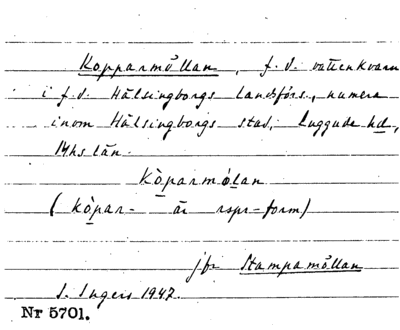 Kopparmöllan, f.d. vattenkvarn
i f.d. Hälsingborgs landsförs., numera
inom Hälsingborgs stad, Luggude hd,
Mhs län.
Kòparmø̀lan
(kòpar- är rspr-form)
jfr Stampamöllan
S. Ingers 1947.
Nr 5701.